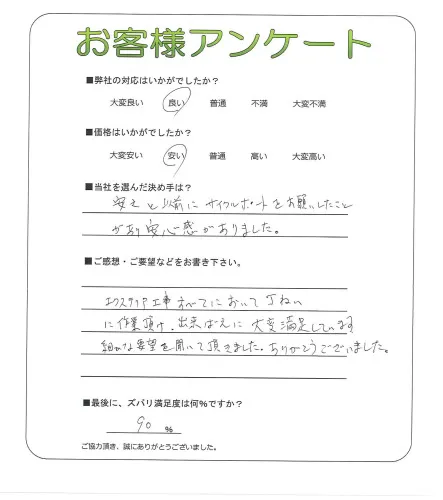 お客様アンケート
■弊社の対応はいかがでしたか？
大変良い 良い 普通 不満 大変不満
■価格はいかがでしたか？
大変安い 安い 普通 高い 大変高い
■当社を選んだ決め手は？
安さと以前にサイクルポートをお願いしたこと
があり安心感がありました。
■ご感想・ご要望などをお書き下さい。
エクステリア工事すべてにおいて丁ねい
に作業頂け、出来ばえに大変満足しています
細かな要望を聞いて頂きました。ありがとうございました。
■最後に、ズバリ満足度は何%ですか？
90 %
ご協力頂き、誠にありがとうございました。